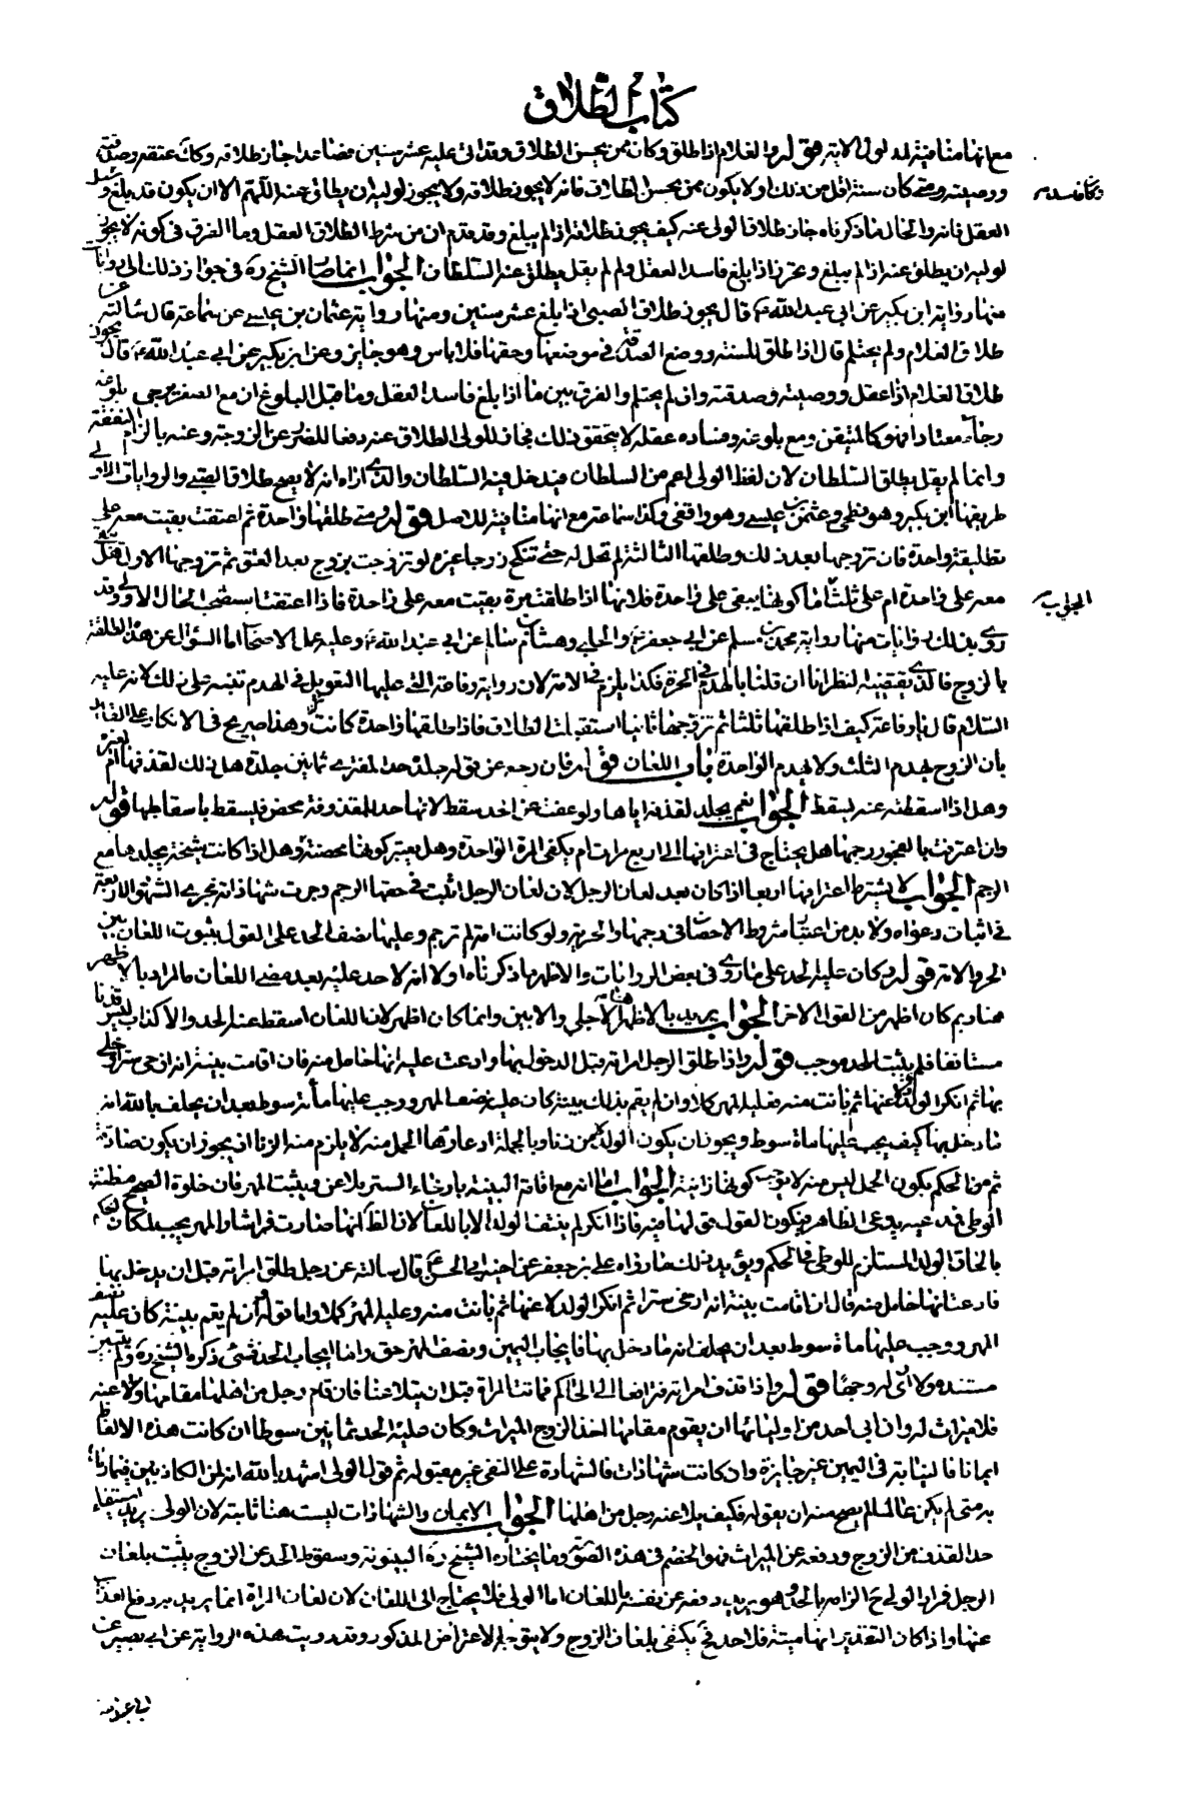 كتاب الطلاق
مع انها منافية لمدلول الاية قوله والغلام اذا طلق وكان ممن يحسن الطلاق وقد اتى عليه عشر سنين فصاعدا جاز طلاقه وكذلك عتقه وصدقته
ووصيته ومتى كان سنه اقل من ذلك اولا يكون ممن يحسن الطلاق فانه لا يجوز طلاقه ولا يجوز لوليه ان يطلق عنه اللهم الا ان يكون قد بلغ و
وكان فاسد
العقل فانه والحال ما ذكرناه جاز طلاق الولى عنه كيف يجوز طلاقه اذا لم يبلغ وقد تقدم ان من شرط الطلاق العقل وما الفرق فى كونه لا يجوز
لوليه ان يطلق عنه اذا لم يبلغ ويجوز اذا بلغ فاسد العقل ولم لم يقل يطلق عنه السلطان الجواب انما صار الشيخ ره فى جواز ذلك الى روايات
منها رواية ابن بكير عن ابى عبد الله ع قال يجوز طلاق الصبى اذا بلغ عشر سنين ومنها رواية عثمان بن عيسى عن سماعة قال سالته عن
طلاق الغلام ولم يحتلم قال اذا طلق للسنة ووضع الصدقة فى موضعها وحقها فلا باس وهو جايز وعن ابن بكير عن ابى عبد الله ع قال يجوز
طلاق الغلام اذا عقل ووصيته وصدقته وان لم يحتلم والفرق بين ما اذا بلغ فاسد العقل وما قبل البلوغ ان مع الصغر يرجى بلوغه
رجاء معتادا فهو كالمتيقن ومع بلوغه وفساد عقله لا يتحقق ذلك فجاز للولى الطلاق عنه دفعا للضرر عن الزوجة وعنه بالزام النفقة
وانما لم يقل يطلق السلطان لان لفظ الولى اعم من السلطان فيدخل فيه السلطان والذى اراه انه لا يصح طلاق الصبى والروايات الاولى
طريقها ابن بكير وهو فطحى وعثمان بن عيسى وهو واقفى وكذا سماعة مع انها منافية للاصل قوله ومتى طلقها واحدة ثم اعتقت بقيت معه على
تطليقة واحدة فان تزوجها بعد ذلك وطلقها الثانية لم تحل له حتى تنكح زوجا غيره لو تزوجت بزوج بعد العتق ثم تزوجها الاول هل تبقى
معه على واحدة ام على ثلث اما كونها تبقى على واحدة فلانها اذا طلقت مرة بقيت معه على واحدة فاذا اعتقت استصحب الحال الاولى وقد
الجواب
روى بذلك روايات منها رواية محمد بن مسلم عن ابى جعفر ع والحلبى وهشام بن سالم عن ابى عبد الله ع وعليه عمل الاصحاب اما السؤال عن هدم الطلقة
بالزوج فالذى يقتضيه النظر انا ان قلنا بالهدم فى الحرة فكذا يلزم فى الامة لان رواية رفاعة التى عليها التعويل فى الهدم تنبه على ذلك لانه عليه
السلام قال يا رفاعة كيف اذا طلقها ثلثا ثم تزوجها ثانيا استقبلت الطلاق فاذا طلقها واحدة كانت وهذا صريح فى الانكار على القائل
بان الزوج يهدم الثلث ولا يهدم الواحدة باب اللعان قوله فان رجع عن قوله جلد حد المفترى ثمانين جلدة هل ذلك لقذفها ام لغيره
وهل اذا اسقطته عنه يسقط الجواب نعم يجلد لقذفه اياها ولو عفت عن الحد سقط لانها حد للمقذوفة محض فيسقط باسقاطها قوله
وان اعترفت بالفجور رجمها هل يحتاج فى اعترافها الى اربع مرات ام يكفى المرة الواحدة وهل يعتبر كونها محصنة وهل اذا كانت شيخة يجلدها مع
الرجم الجواب لا يشترط اعترافها اربعا اذا كان بعد لعان الرجل لان لعان الرجل اثبت فى حقها الرجم وجرت شهاداته مجرى الشهود الاربعة
فى اثبات دعواه ولا بد من اعتبار شروط الاحصان فى رجمها والحرية ولو كانت امة لم ترجم وعليها نصف الحد على القول بثبوت اللعان بين
الحر والامة قوله وكان عليه الحد على ما روى فى بعض الروايات والاظهر ما ذكرناه اولا انه لا حد عليه بعد مضى اللعان ما المراد بالاظهر
هنا وبم كان اظهر من القول الاخر الجواب يريد بالاظهر هنا الاجلى والابين وانما كان اظهر لان اللعان اسقط عنه الحد والاكذاب ليس قذفا
مستانفا فلم يثبت الحد موجب قوله واذا طلق الرجل امراته قبل الدخول بها وادعت عليه انها حامل منه فان اقامت بينة انه ارخى سترا وخلى
بها ثم انكر الولد لاعنها ثم بانت منه وعليه المهر كملا وان لم يقم بذلك بينة كان عليه نصف المهر ووجب عليها مائة سوط بعد ان يحلف بالله انه
ما دخل بها كيف يجب عليها مائة سوط ويجوز ان يكون الولد من زنا وبالجملة ادعاؤها الحمل منه لا يلزم منه الزنا اذ يجوز ان يكون صادقة
ثم من الحكم بكون الحمل ليس منه لا يوجب كونها زانية الجواب اما انه مع اقامة البينة بارخاء الستر يلاعن ويثبت المهر فان خلوة الصحيح مظنة
الوطى فمدعيه يدعى الظاهر فيكون القول قولها فيه فاذا انكر لم ينتف الولد الا باللعان لان الظاهر انها صارت فراشا والمهر يجب لمكان الحكم
بالحاق الولد المستلزم للوطى فى الحكم ويؤيد ذلك ما رواه على بن جعفر عن اخيه ابى الحسن ع قال سالته عن رجل طلق امراته قبل ان يدخل بها
فادعت انها حامل منه قال ان اقامت بينة انه ارخى سترا ثم انكر الولد لاعنها ثم بانت منه وعليه المهر كملا واما قوله وان لم يقم بينة كان عليه نصف
المهر ووجب عليها مائة سوط بعد ان يحلف انه ما دخل بها فايجاب اليمين ونصف المهر حق واما ايجاب الحد فشئ ذكره الشيخ ره ولم يتبين
مستنده ولا ارى له وجها قوله واذا قذف امراته فترافعا الى الحاكم فماتت المراة قبل ان يتلاعنا فان قام رجل من اهلها مقامها ولاعنه
فلا ميراث له وان ابى احد من اوليائها ان يقوم مقامها اخذ الزوج الميراث وكان عليه الحد ثمانين سوطا ان كانت هذه الالفاظ
ايمانا فالنيابة فى اليمين غير جايزة وان كانت شهادات فالشهادة على النفى غير مقبولة ثم قول الولى اشهد بالله انه لمن الكاذبين فيما رماها
به متى لم يكن عالما لم يصح منه ان يقوله فكيف يلاعنه رجل من اهلها الجواب الايمان والشهادات ليست هنا ثابتة لان الولى يريد استيفاء
حد القذف من الزوج ودفعه عن الميراث فهو الخصم فى هذه الصورة وما يختاره الشيخ ره البينونة وسقوط الحد عن الزوج يثبت بلعان
الرجل فراى الولى ح الزامه بالحد وهو يريد دفعه عن نفسه باللعان اما الولى فلا يحتاج الى اللعان لان لعان المراة انما يريد به دفع العذاب
عنها واذا كان التقدير انها ميتة فلا حد فح يكتفى بلعان الزوج ولا يتوجه الاعتراض المذكور وقد رويت هذه الرواية عن ابى بصير عن
ابى عبد الله